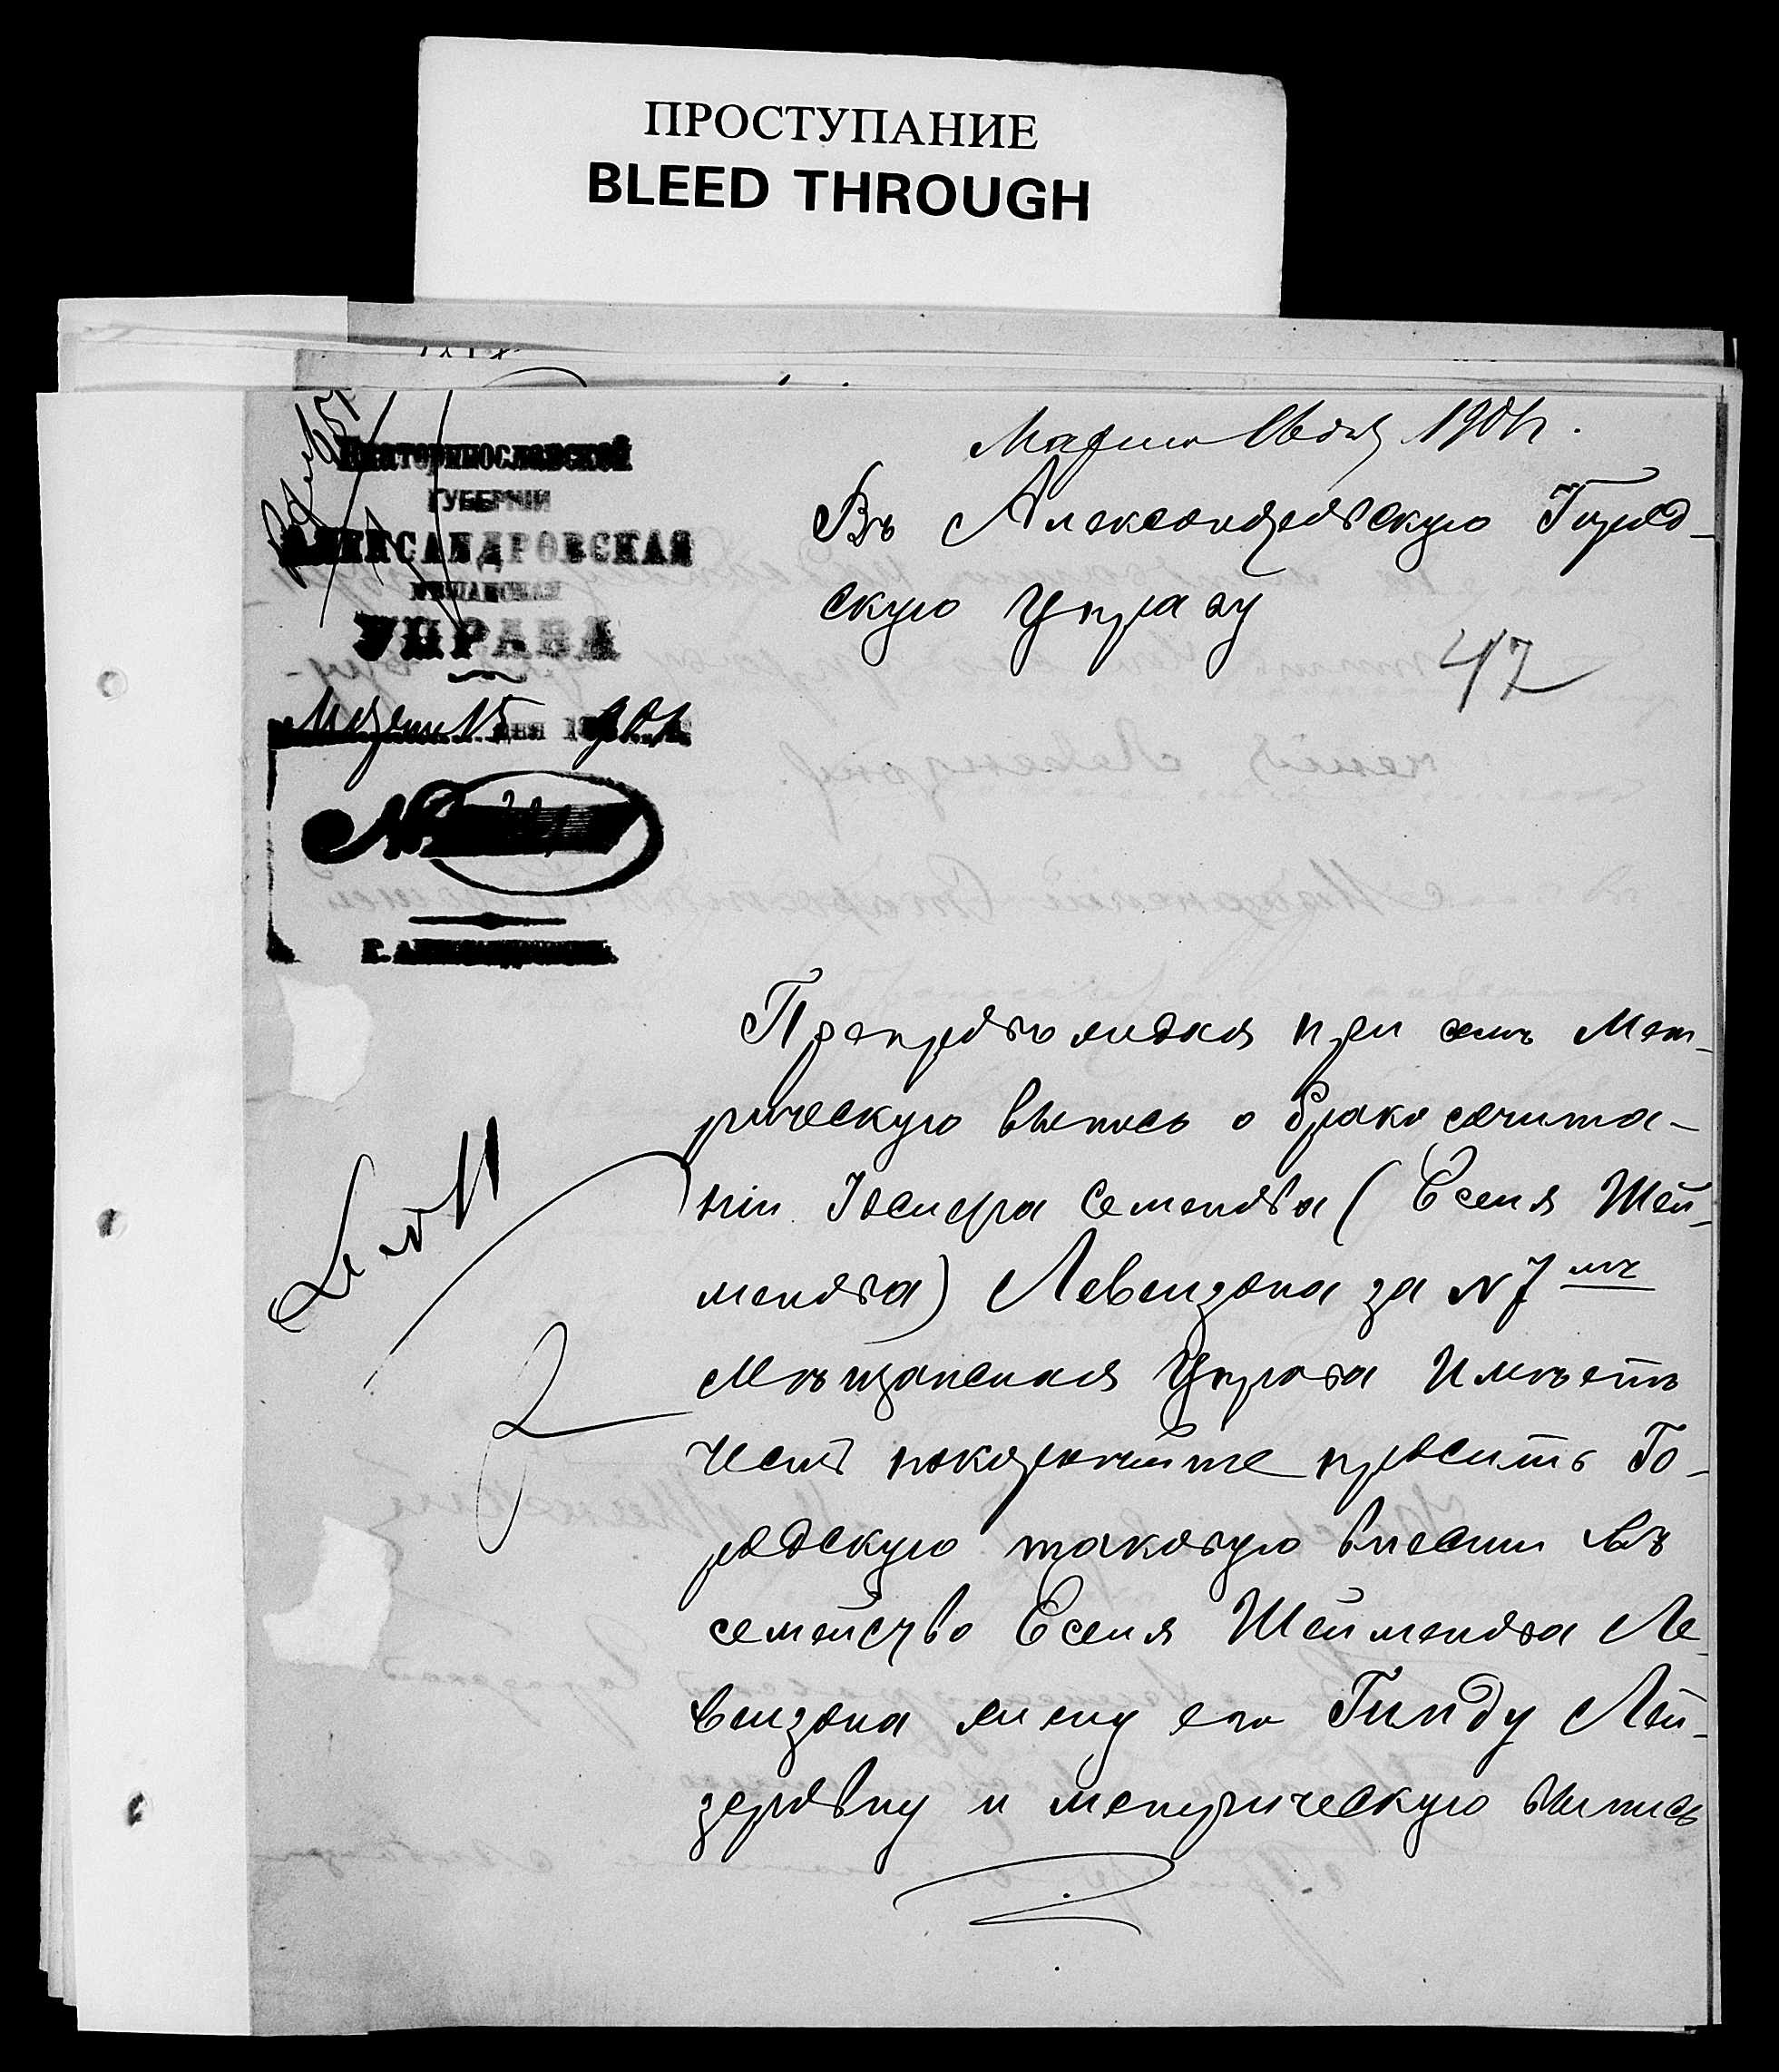 ПРОСТУПАНИЕ
BLEED THROUGH
Екатеринославской
ГУБЕРНІИ
АЛЕКСАНДРОВСКАЯ
МѢЩАНСКАЯ
УПРАВА
Марта 15 дня 1901
№
Г. АЛЕКСАНДРОВСКЪ.
Марта 1901 г.
Въ Александровскую Город-
скую Управу
47
Препровождая при семъ Мет-
рическую выпись о бракосочита-
ніи Іосифа Семенова (Еселя Шей-
менова) Левензона за № 7мъ
Мѣщанская Управа Имѣетъ
честь покорнѣйше просить Го-
родскую таковую внести въ
семейство Еселя Шейменова Ле-
вензона жену его Гинду Лей-
зеровну и метрическую выпись